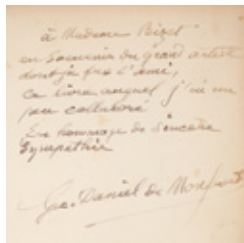 à Madame Bizet
en souvenir du grand artiste
dont je fus l'ami,
ce livre auquel j'ai un
peu collaboré
En hommage de sincère
sympathie
Geo. Daniel de Monfreid